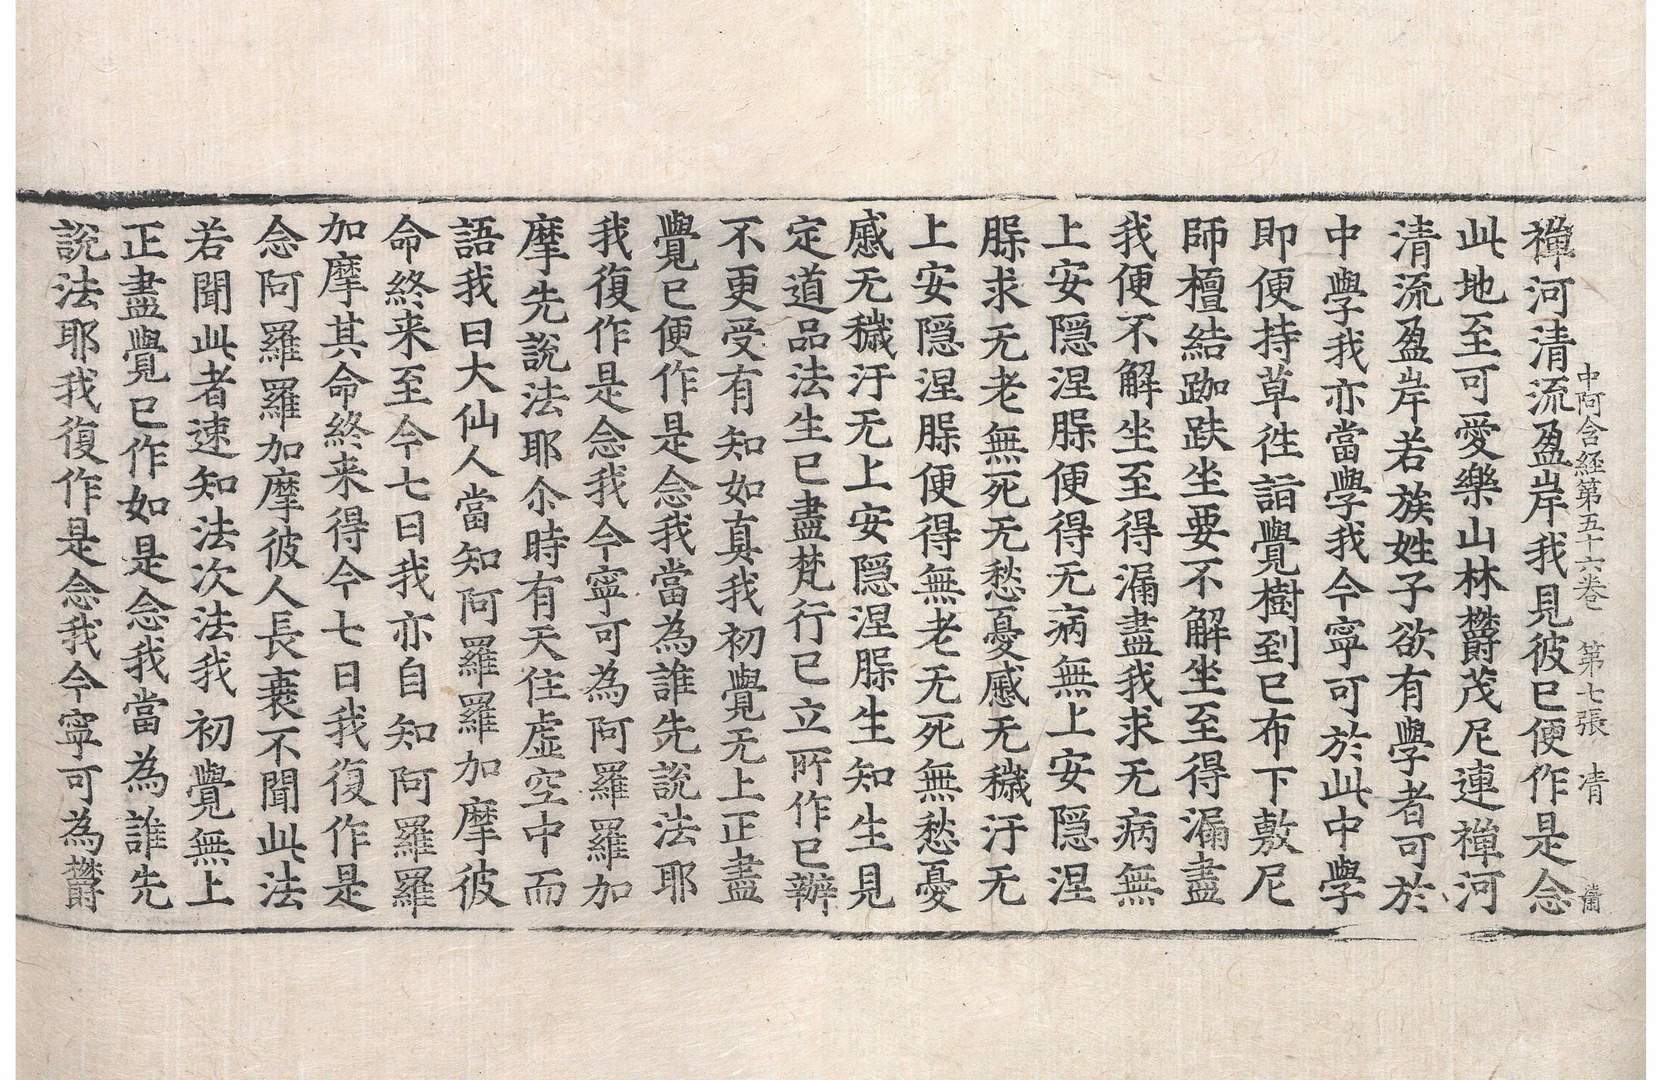 中阿含経第五十六巻 第七張 清
禅河清流盈岸我見彼已便作是念
此地至可愛樂山林欝茂尼連禅河
清流盈岸若族姓子欲有學者可於
中學我亦當學我今寧可於此中學
即便持草徃詣覺樹到已布下敷尼
師檀結跏趺坐要不解坐至得漏盡
我便不解坐至得漏盡我求无病無
上安隠涅槃便得无病無上安隠涅
槃求无老無死无愁憂慼无穢汙无
上安隠涅槃便得無老无死無愁憂
慼无穢汙无上安隠涅槃生知生見
定道品法生已盡梵行已立所作已辦
不更受有知如真我初覺无上正盡
覺已便作是念我當為誰先説法耶
我復作是念我今寧可為阿羅羅加
摩先説法耶尒時有天住虚空中而
語我曰大仙人當知阿羅羅加摩彼
命終来至今七日我亦自知阿羅羅
加摩其命終来得今七日我復作是
念阿羅羅加摩彼人長衰不聞此法
若聞此者速知法次法我初覺無上
正盡覺已作如是念我當為誰先
説法耶我復作是念我今寧可為欝